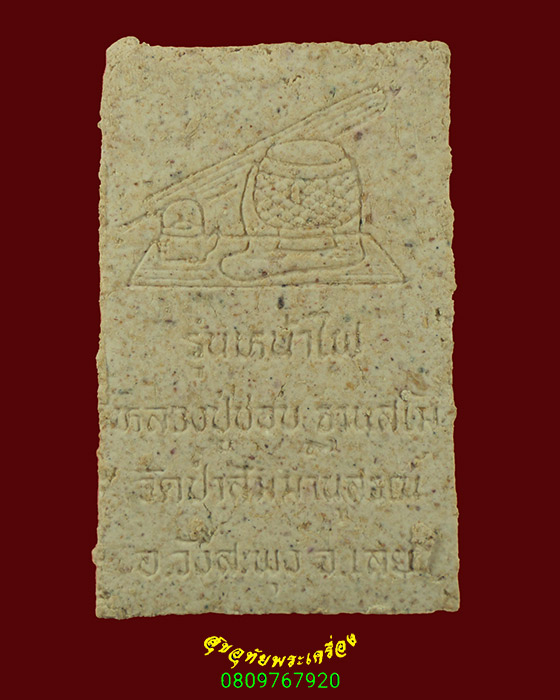 รุ่นเหน้าไฟ
หลวงปู่ชอบ ฐานสโม
วัดป่าสัมมานุสรณ์
อ.วังสะพุง จ.เลย
สุขอุทัยพระเครื่อง
0809767920